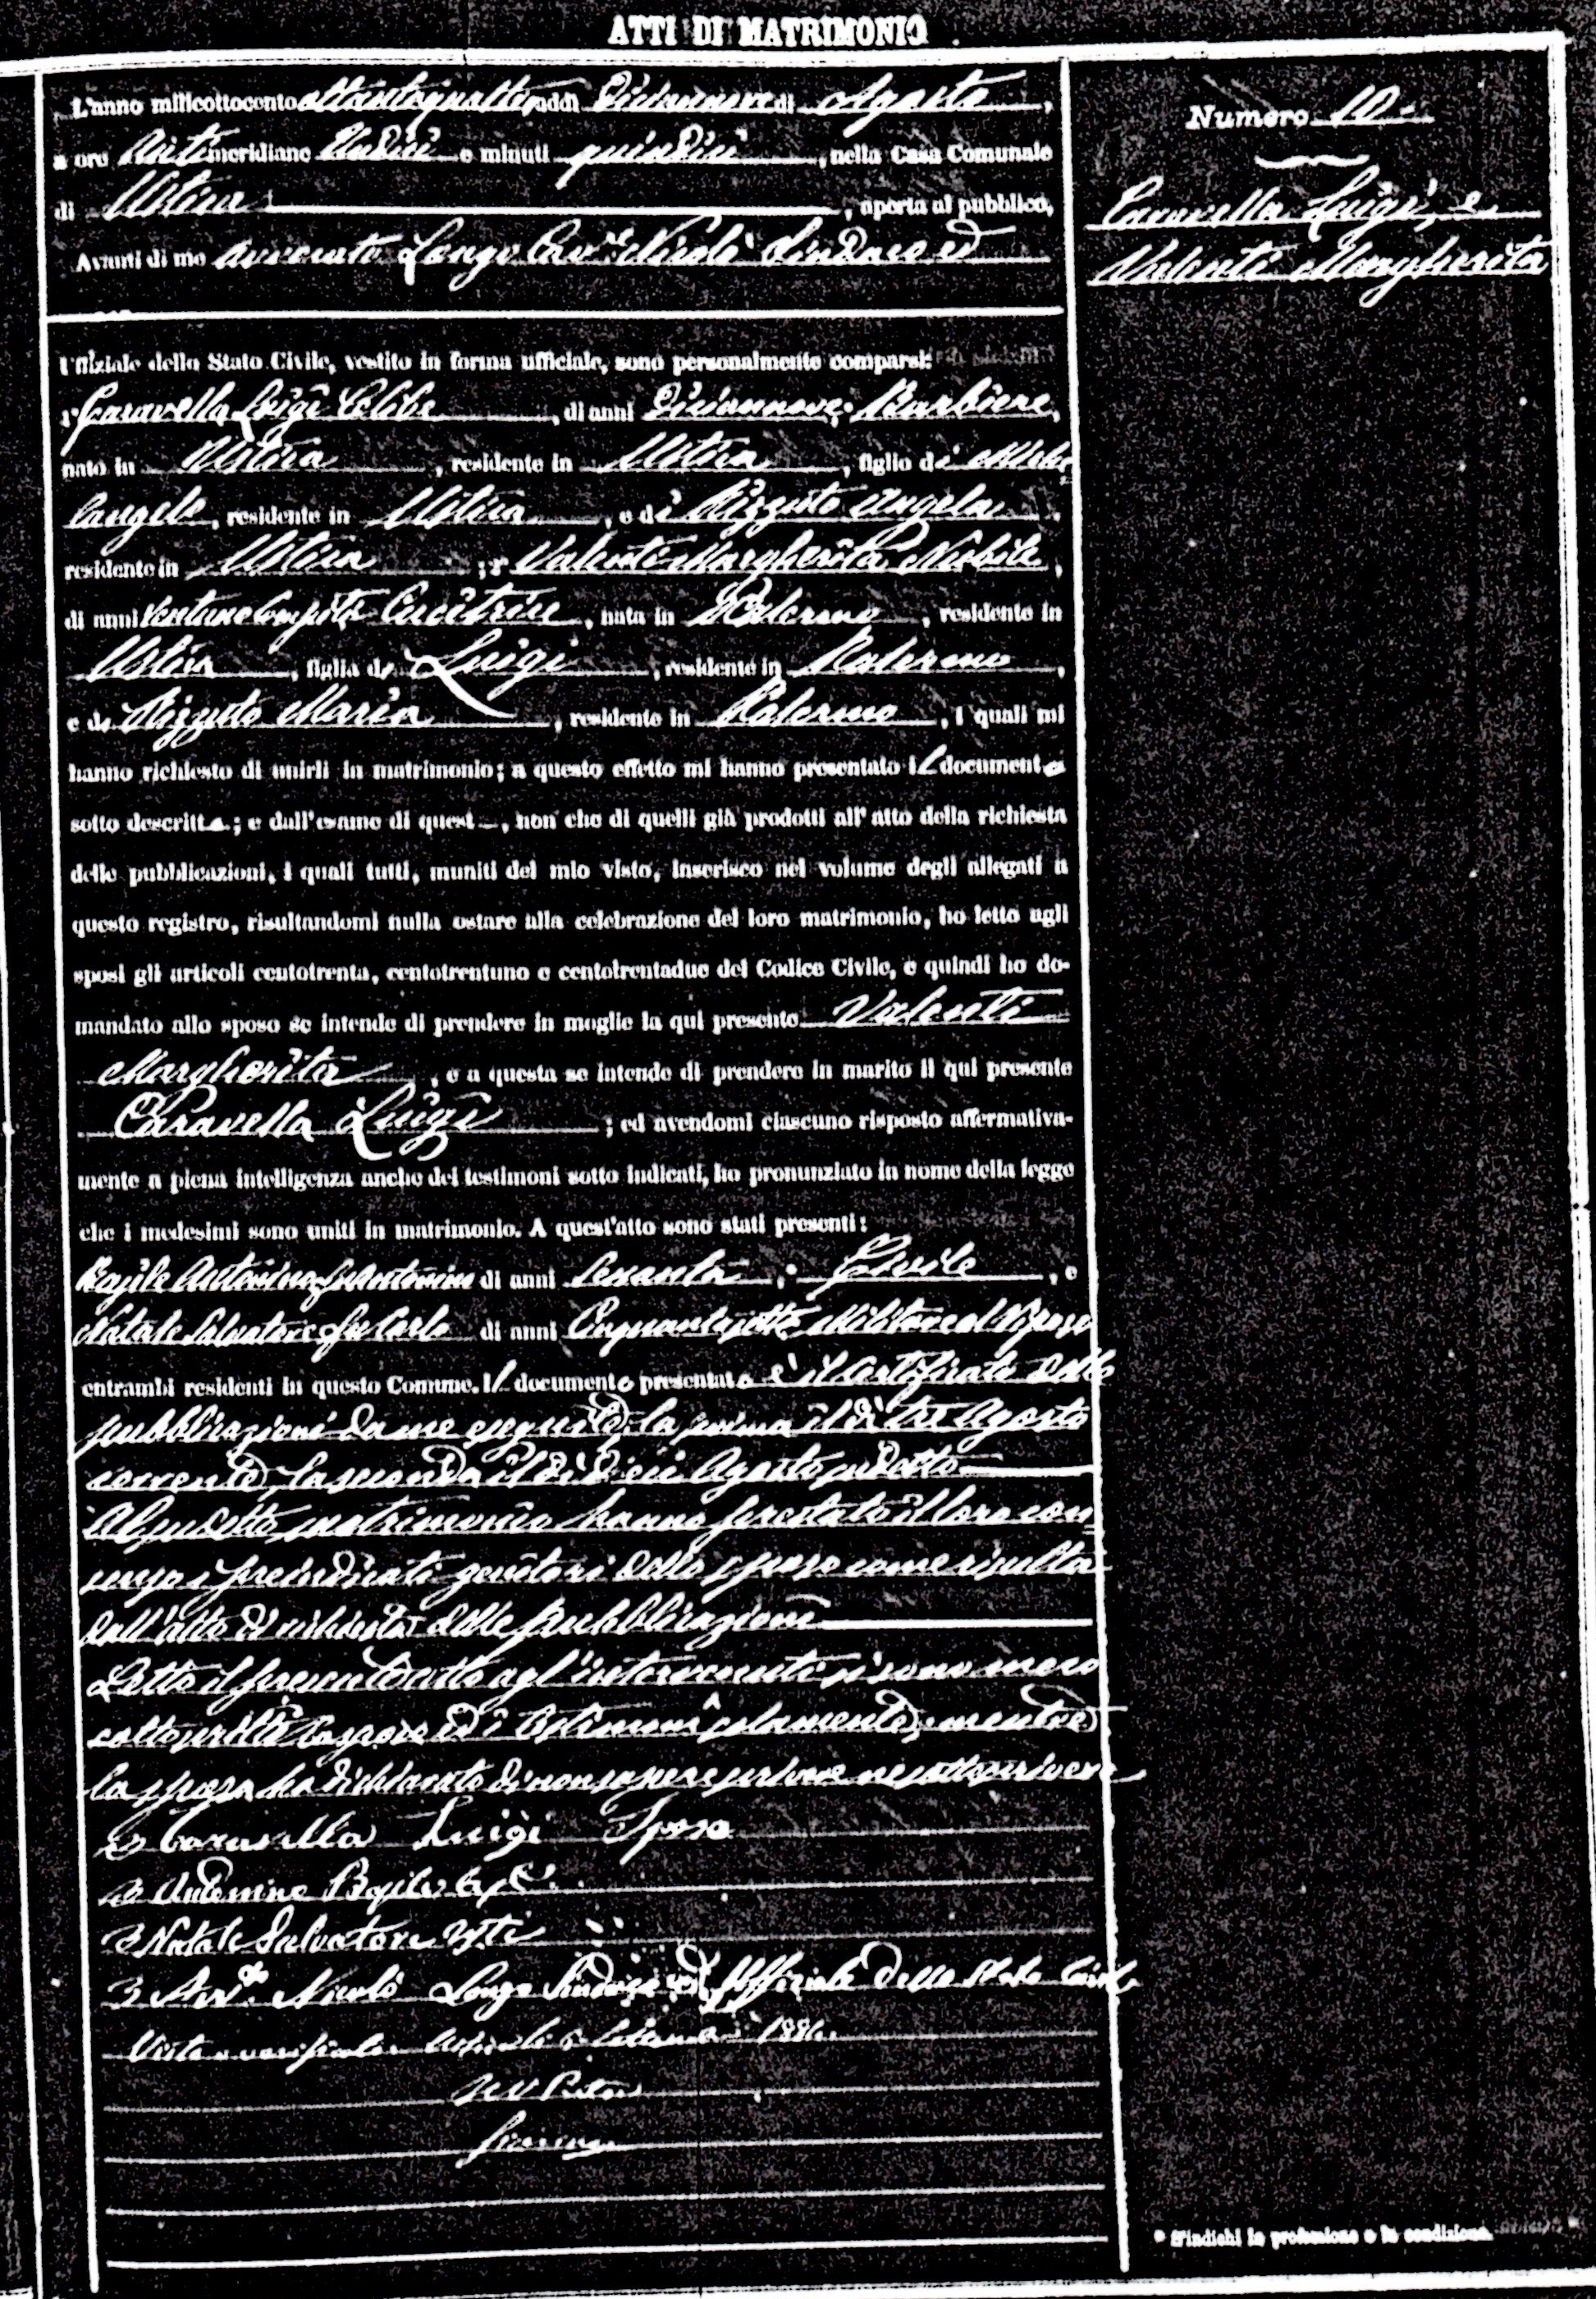 ATTI DI MATRIMONIO
L'anno milleottocento ottantaquattro, addì Diciannove di Agosto,
a ore Antimeridiane Undici e minuti quindici, nella Casa Comunale
di Ustica, aperta al pubblico,
Avanti di me avvocato Longo Cav.re Nicolò Sindaco ed
Uffiziale dello Stato Civile, vestito in forma ufficiale, sono personalmente comparsi:
1° Caravella Luigi Celibe, di anni Diciannove, Barbiere,
nato in Ustica, residente in Ustica, figlio di Miche
langelo, residente in Ustica, e di Rizzuto Angela,
residente in Ustica; 2° Valenti Margherita Nubile,
di anni Ventuno compita Cucitrice, nata in Palermo, residente in
Ustica, figlia di Luigi, residente in Palermo,
e di Rizzuto Maria, residente in Palermo, i quali mi
hanno richiesto di unirli in matrimonio; a questo effetto mi hanno presentato il documento
sotto descritto; e dall'esame di quest, non che di quelli già prodotti all'atto della richiesta
delle pubblicazioni, i quali tutti, muniti del mio visto, inserisco nel volume degli allegati a
questo registro, risultandomi nulla ostare alla celebrazione del loro matrimonio, ho letto agli
sposi gli articoli centotrenta, centotrentuno e centotrentadue del Codice Civile, e quindi ho do-
mandato allo sposo se intende di prendere in moglie la qui presente Valenti
Margherita, e a questa se intende di prendere in marito il qui presente
Caravella Luigi; ed avendomi ciascuno risposto affermativa-
mente a piena intelligenza anche dei testimoni sotto indicati, ho pronunziato in nome della legge
che i medesimi sono uniti in matrimonio. A quest'atto sono stati presenti:
Basile Antonino fu Antonino di anni Sessanta, Civile, e
Natale Salvatore fu Carlo di anni Cinquantasette Militare al Riposo
entrambi residenti in questo Comune. Il documento presentato è il certificato delle
pubblicazioni da me eseguite, la prima il dì tre Agosto
corrente, la seconda il dì dieci Agosto sudetto
Al sudetto matrimonio hanno prestato il loro con
senso i preindicati genitori dello sposo come risulta
dall'atto di richiesta delle pubblicazioni
Letto il presente atto agl'intervenuti si sono meco
sottoscritti lo sposo ed i testimoni solamente, mentre
la sposa ha dichiarato di non sapere scrivere ne sottoscrivere
Caravella Luigi Sposo
Antonino Basile
Natale Salvatore
Avv.to Nicolò Longo Sindaco ed Uffiziale dello Stato Civile
Visto e verificato 1884.
Pretore
Numero 10
Caravella Luigi, e
Valenti Margherita
* S'indichi la professione o la condizione.